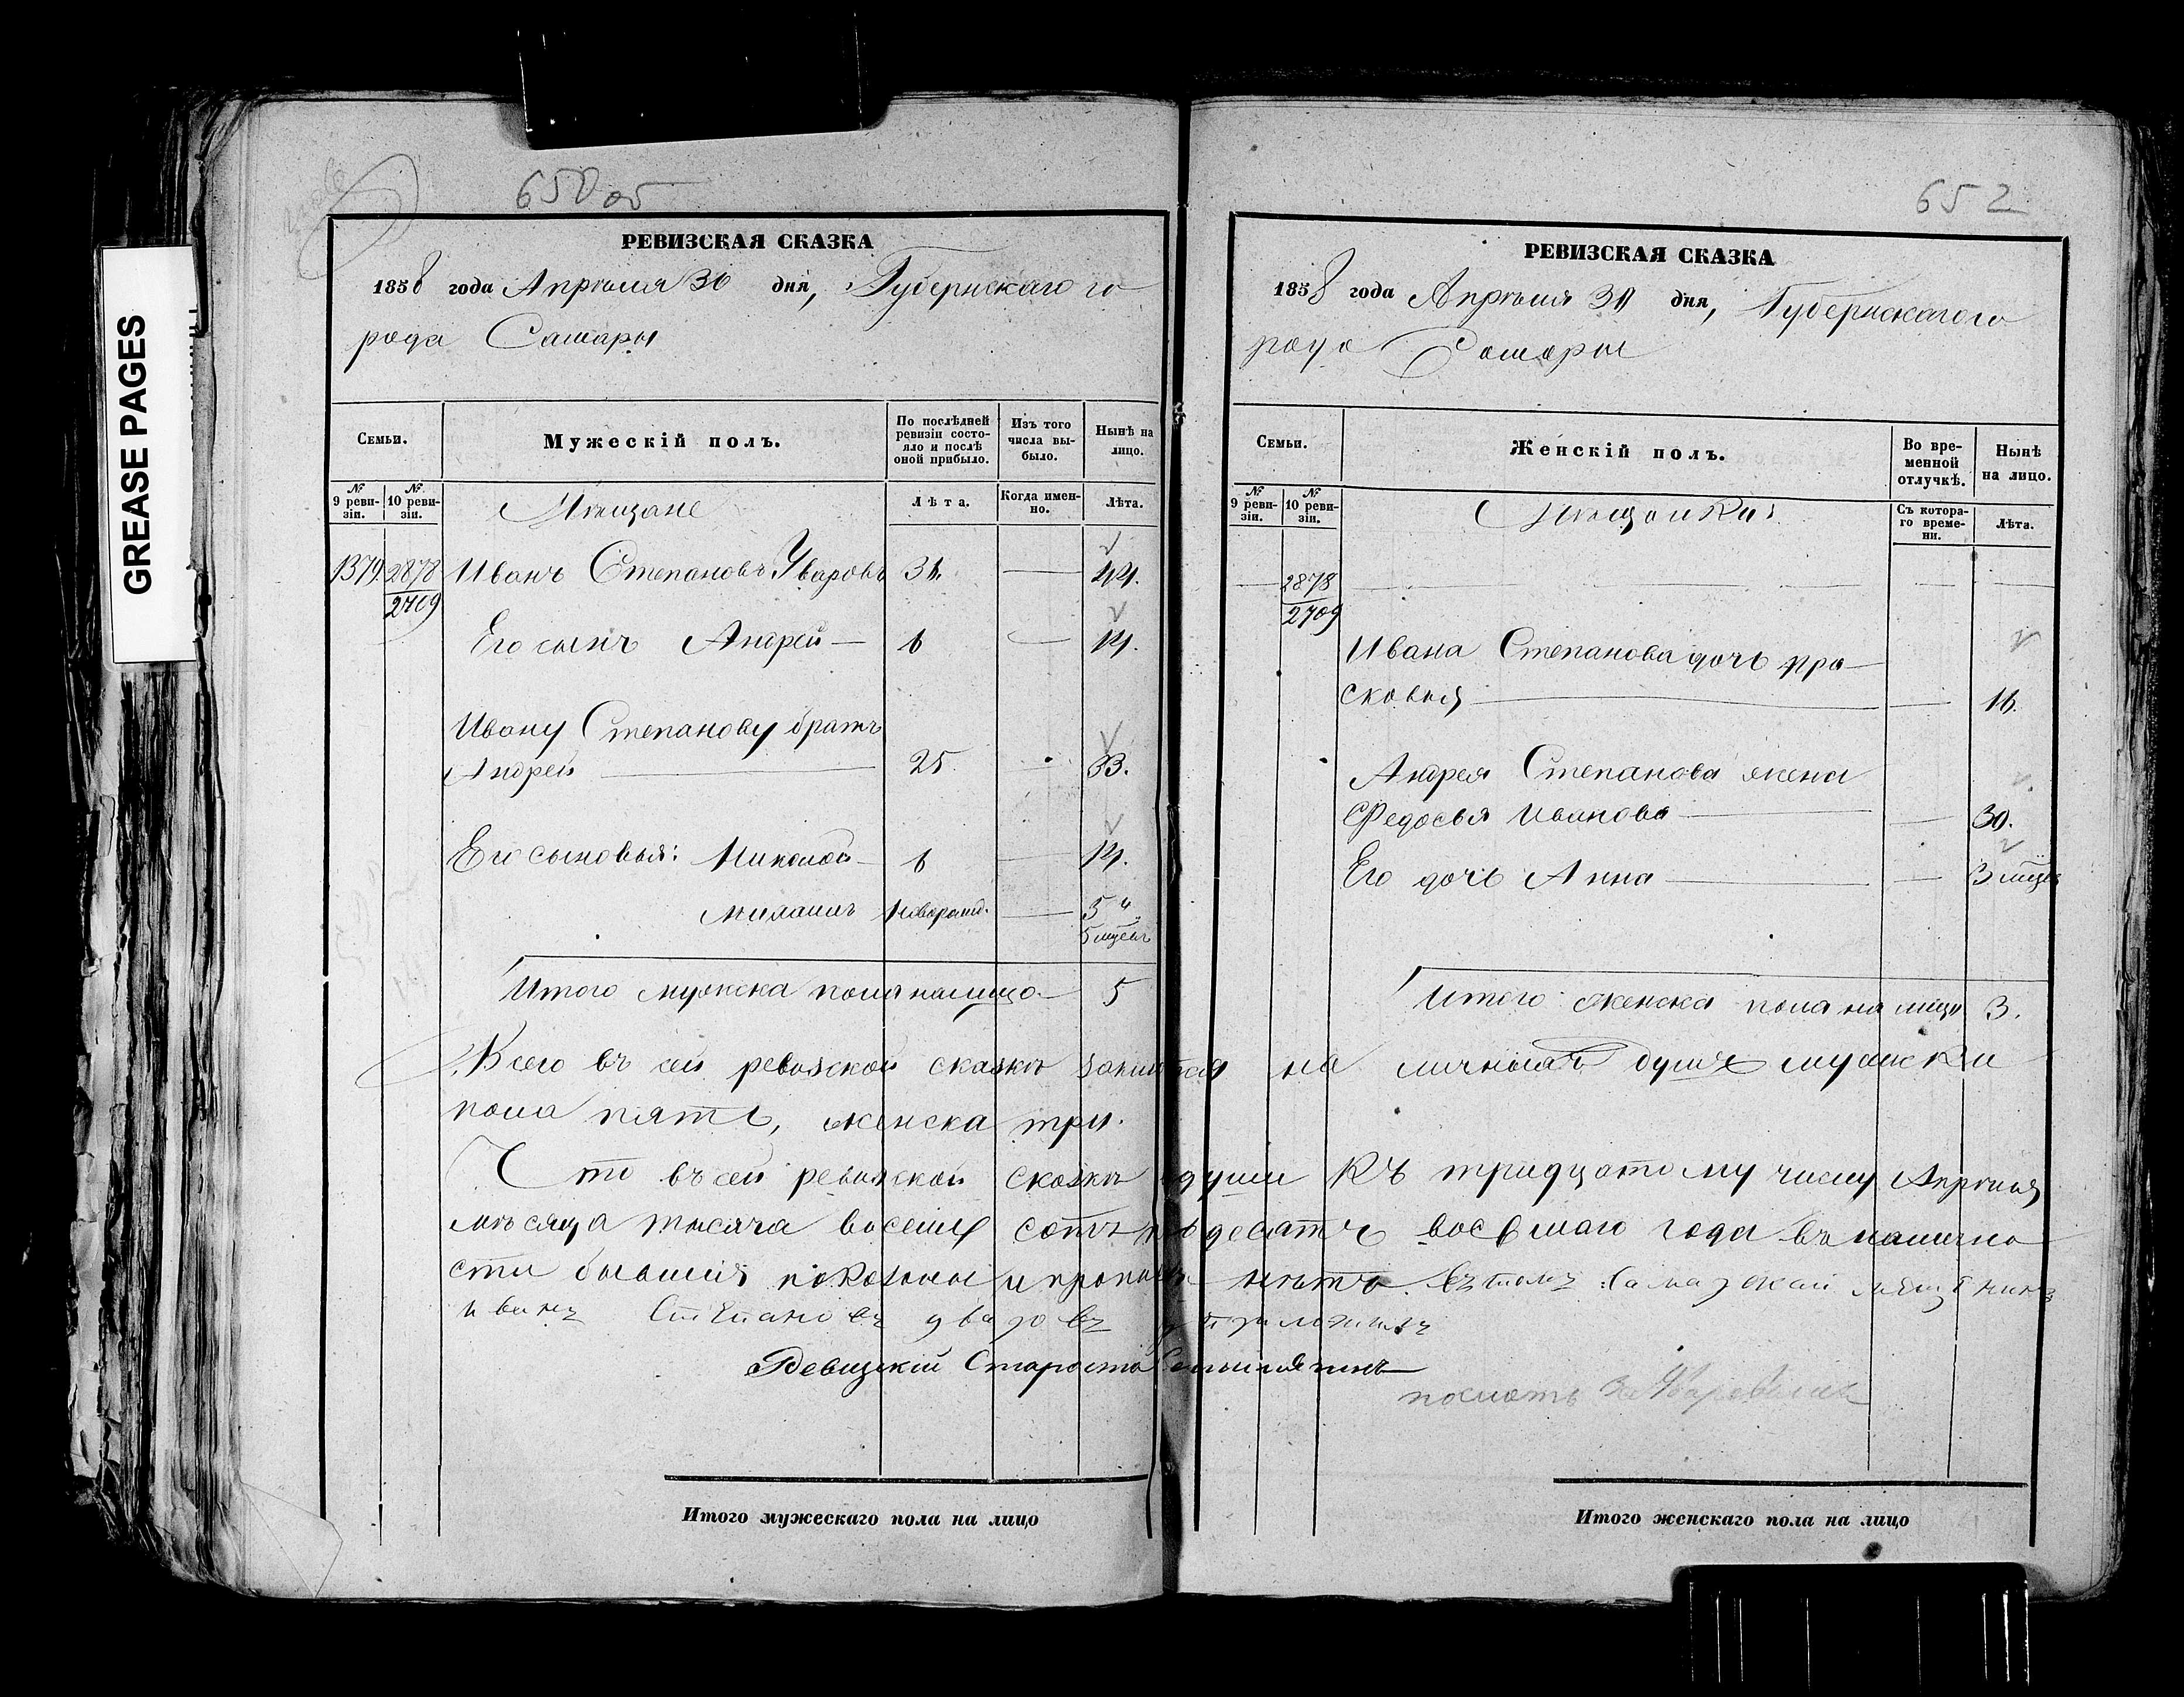 GREASE PAGES
650 об
РЕВИЗСКАЯ СКАЗКА
1858 года Апрѣля 30 дня, Губернскаго го
рода Самары
Семьи.
Мужескій полъ.
По послѣдней ревизіи состо-
яло и послѣ
оной прибыло.
Изъ того
числа вы-
было.
Нынѣ на
лицо.
№ 9 реви-
зіи.
№ 10 реви-
зіи.
Мѣщане
Лѣта.
Когда имен-
но.
Лѣта.
1379 2878 Иванъ Степановъ Уваровъ 31. — 44.
2709
Его сынъ Андрей — 6 — 14.
Ивану Степанову братъ
Андрей — 25 — 33.
Его сыновья: Николай — 6 — 14.
новорожд. — 5
5 мцевъ
Итого мужска пола на лицо — 5
652
РЕВИЗСКАЯ СКАЗКА
1858 года Апрѣля 30 дня, Губернскаго го
рода Самары
Семьи.
Женскій полъ.
Во вре-
менной
отлучкѣ.
Нынѣ
на лицо.
№ 9 реви-
зіи.
№ 10 реви-
зіи.
Мѣщанки:
Съ котора-
го време-
ни.
Лѣта.
— 2878 — — —
2709
Ивана Степанова дочь Пра-
сковья — — 16.
Андрея Степанова жена
Федосья Иванова — — 30.
Его дочь Анна — — 3 мцев
Итого женска пола на лицо 3.
Всего въ сей ревизской сказкѣ на личныхъ душъ мужска
пола пять, женска три.
Что въ сей ревизской сказкѣ души къ тридцатому числу Апрѣля
мѣсяца тысяча восемь сотъ десятъ восьмаго года въ налично
сти бывшія показаны и нѣтъ. въ томъ Самарской мѣщенинъ
Иванъ Степановъ Уваровъ приложилъ
Ревизскій Староста
послать за Уваровымъ
Итого мужескаго пола на лицо
Итого женскаго пола на лицо